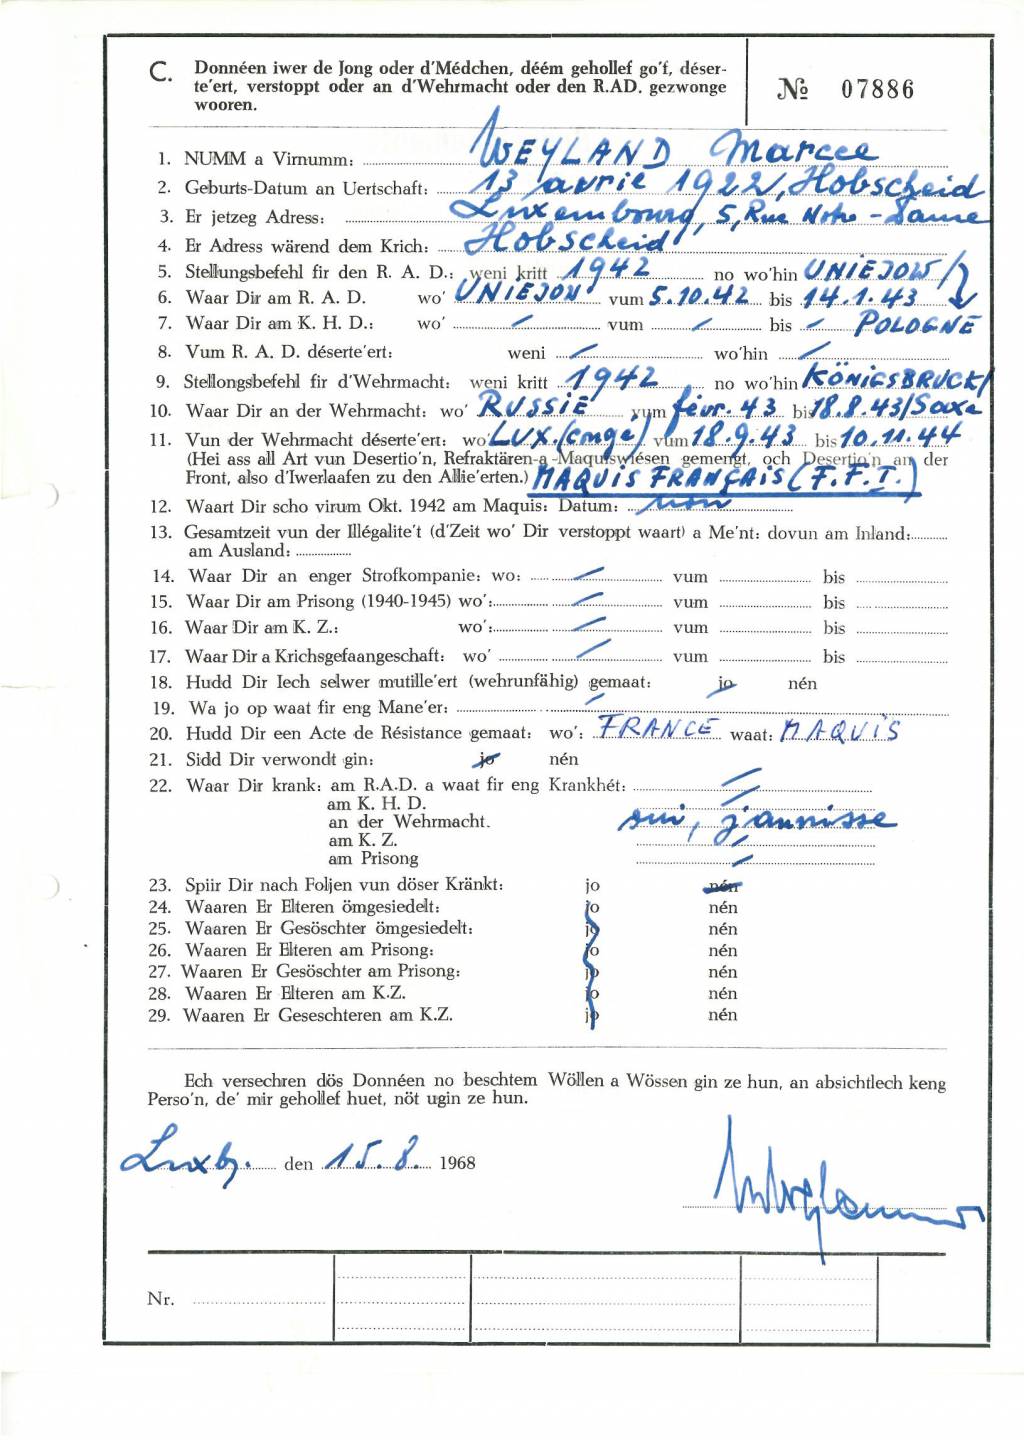 C. Donnéen iwer de Jong oder d'Médchen, déém gehollef go'f, déser-
te'ert, verstoppt oder an d'Wehrmacht oder den R.AD. gezwonge
wooren.
№ 07886
1. NUMM a Virnumm: WEYLAND Marcel
2. Geburts-Datum an Uertschaft: 13 avril 1922, Hobscheid
3. Er jetzeg Adress: Luxembourg, 5, Rue Notre-Dame
4. Er Adress wärend dem Krich: Hobscheid
5. Stellungsbefehl fir den R. A. D.: weni kritt 1942 no wo'hin UNIEJOW/
6. Waar Dir am R. A. D. wo' UNIEJOW vum 5.10.42 bis 14.1.43
7. Waar Dir am K. H. D.: wo' / vum / bis / POLOGNE
8. Vum R. A. D. déserte'ert: weni / wo'hin /
9. Stellongsbefehl fir d'Wehrmacht: weni kritt 1942 no wo'hin KÖNIGSBRÜCK/
10. Waar Dir an der Wehrmacht: wo' RUSSIE vum févr. 43 bis 18.8.43/Saxe
11. Vun der Wehrmacht déserte'ert: wo' LUX. (congé) vum 18.9.43 bis 10.11.44
(Hei ass all Art vun Desertio'n, Refraktären-a -Maquiswiésen gemengt, och Desertio'n an der
Front, also d'Iwerlaafen zu den Allie'erten.) MAQUIS FRANÇAIS (F.F.I.)
12. Waart Dir scho virum Okt. 1942 am Maquis: Datum: non
13. Gesamtzeit vun der Illégalite't (d'Zeit wo' Dir verstoppt waart) a Me'nt: dovun am Inland:
am Ausland:
14. Waar Dir an enger Strofkompanie: wo: / vum bis
15. Waar Dir am Prisong (1940-1945) wo': / vum bis
16. Waar Dir am K. Z.: wo': / vum bis
17. Waar Dir a Krichsgefaangeschaft: wo' / vum bis
18. Hudd Dir Iech selwer mutille'ert (wehrunfähig) gemaat: jo nén
19. Wa jo op waat fir eng Mane'er: /
20. Hudd Dir een Acte de Résistance gemaat: wo': FRANCE waat: MAQUIS
21. Sidd Dir verwondt gin: jo nén
22. Waar Dir krank: am R.A.D. a waat fir eng Krankhét: /
am K. H. D. /
an der Wehrmacht. oui, jaunisse
am K. Z. /
am Prisong /
23. Spiir Dir nach Foljen vun döser Kränkt: jo nén
24. Waaren Er Elteren ömgesiedelt: jo nén
25. Waaren Er Gesöschter ömgesiedelt: jo nén
26. Waaren Er Elteren am Prisong: jo nén
27. Waaren Er Gesöschter am Prisong: jo nén
28. Waaren Er Elteren am K.Z. jo nén
29. Waaren Er Geseschteren am K.Z. jo nén
Ech versechren dös Donnéen no beschtem Wöllen a Wössen gin ze hun, an absichtlech keng
Perso'n, de' mir gehollef huet, nöt ugin ze hun.
Luxbg. den 15.8. 1968
Nr.